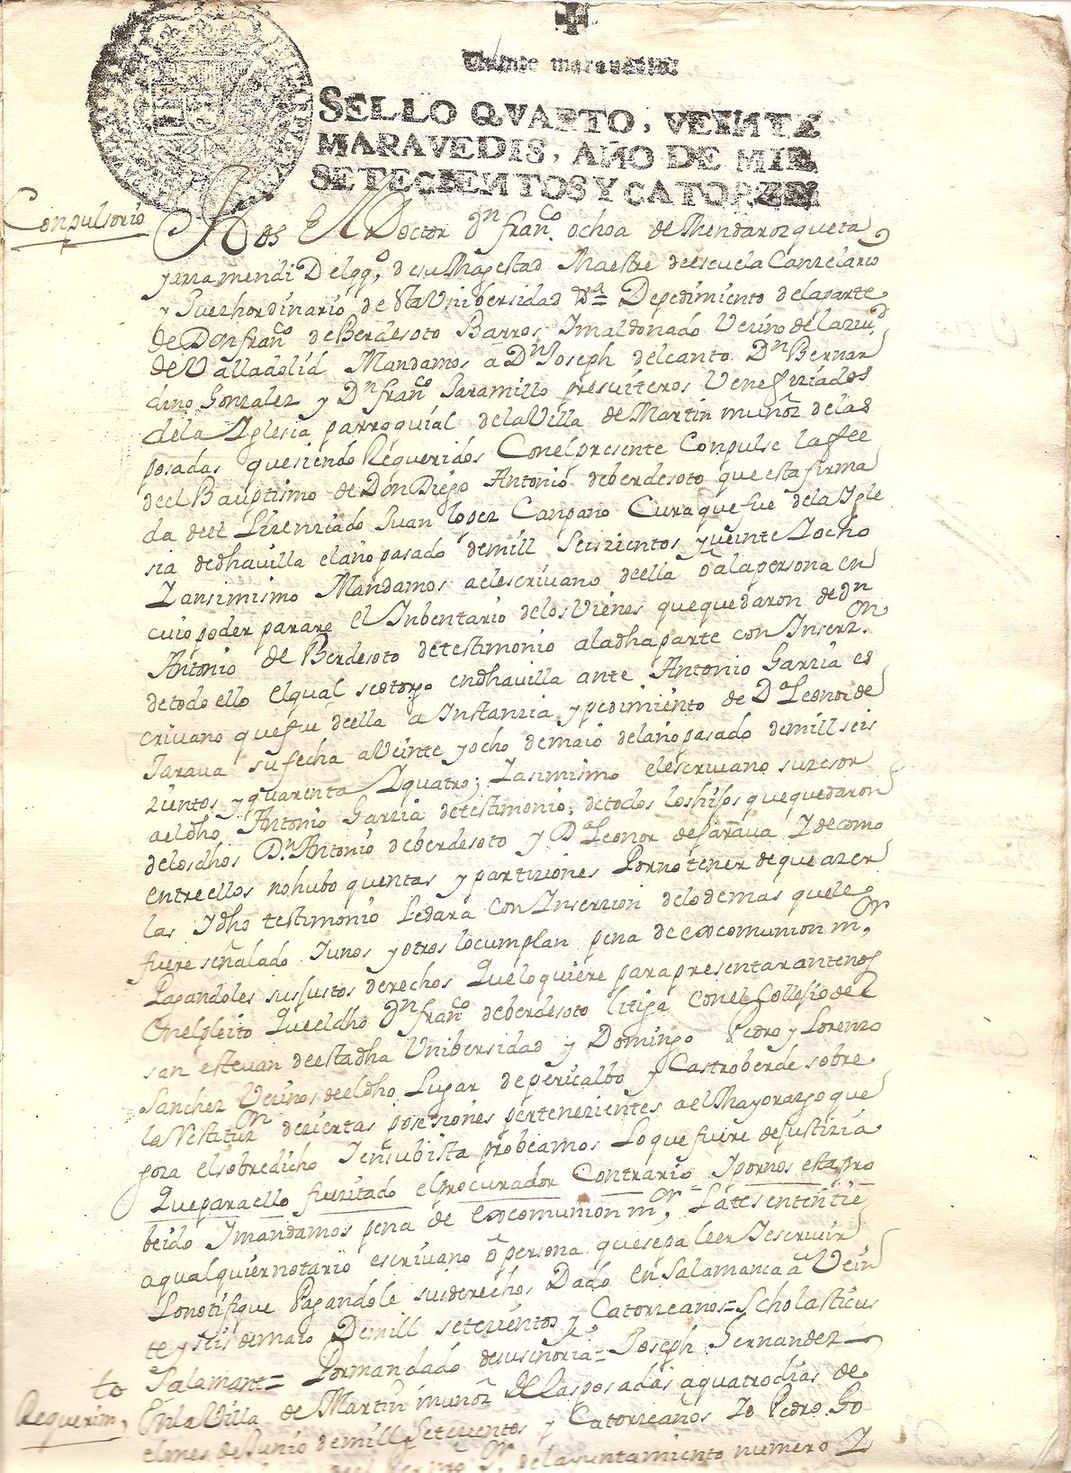 Veinte maravedis.
SELLO QVARTO, VEINTE
MARAVEDIS, AÑO DE MIL
SETECIENTOS Y CATORZE
Conpulsorio
Nos El Doctor Dn franco ochoa de Mendarozqueta
y urramendi Del qqo, desu Magestad Maestre deescuela Canzelario
y Juez hordinario, de Sta Unibersidad Depedimiento delaparte
de Don franco deBerdesoto Barros, Imaldonado Vezino delaziud
de Valladolid Mandamos a Dn Joseph delcanto Dn Bernar
dino Gonzalez y Dn franco Jaramillo presviteros Venefiziados
dela Iglesia parroquial delaVilla de Martin muñoz delas
posadas quesiendo Requeridos Conelpresente Conpulse lafee
deel Bauptismo de Don Diego Antonio deberdesoto que esta firma
da deel Lizenziado Juan lopez Canpano Curaquefue dela Igle
sia dedhavilla elañopasado demill Seiszientos yveinte Iocho
Iansimismo Mandamos aelescrivano deella o alapersona en
cuio poder parare el Inbentario delosVienes quequedaron de dn
Antonio de Berdesoto detestimonio aladhaparte con Inserzon
detodo ello elqual seotorgo endhavilla ante Antonio Garzia es
crivano quefue deella a Instanzia y pedimiento de Da Leonor de
Jarava sufecha aVeinte yocho demaio delañopasado demill seis
zientos y quarenta Iquatro; Iasimismo elescrivano suzesor
aeldho Antonio Garzia detestimonio, detodos loshijos quequedaron
delosdhos Dn Antonio deberdesoto y Da Leonor deJarava Idecomo
entreellos nohubo quentas y partiziones Pornotener deque azer
las Idho testimonio Ledara con Inserzion delodemas quele
fuere señalado Iunos yotros locumplan pena deexcomunion mor,
Pagandoles susjustos derechos Queloquiere parapresentar antenos
Enelpleito Queeldho Dn franco deberdesoto litiga Conel Collejio de
san estevan deestadha Unibersidad y Domingo Pedro y Lorenzo
Sanchez Vezinos deeldho Lugar depericalbo y Castroberde sobre
la Restituzon deziertas posesiones pertenezientes aelMayorazgo que
goza elsobredicho Iensubista probeamos Loquefuere dejustizia
Queparaello fuezitado elprocurador Contrario Ipornos estapro
beido Imandamos pena de excomunion mor, Latesententie
aqualquiernotario escrivano o persona quesepa leer Iescrivir
Lonotifique Pagandole susderechos, Dado en Salamanca a Vein
te yseis demaio Demill setezientos y Catorzeanos=Scholasticus
Salamant= Pormandado desusenoria= Joseph Fernandez
Requerimto
Enla Villa de Martin munoz delasposadas aquatrodias de
elmes deJunio demill Setezientos y Catorzeanos Io Pedro Go
delayuntamiento numero I